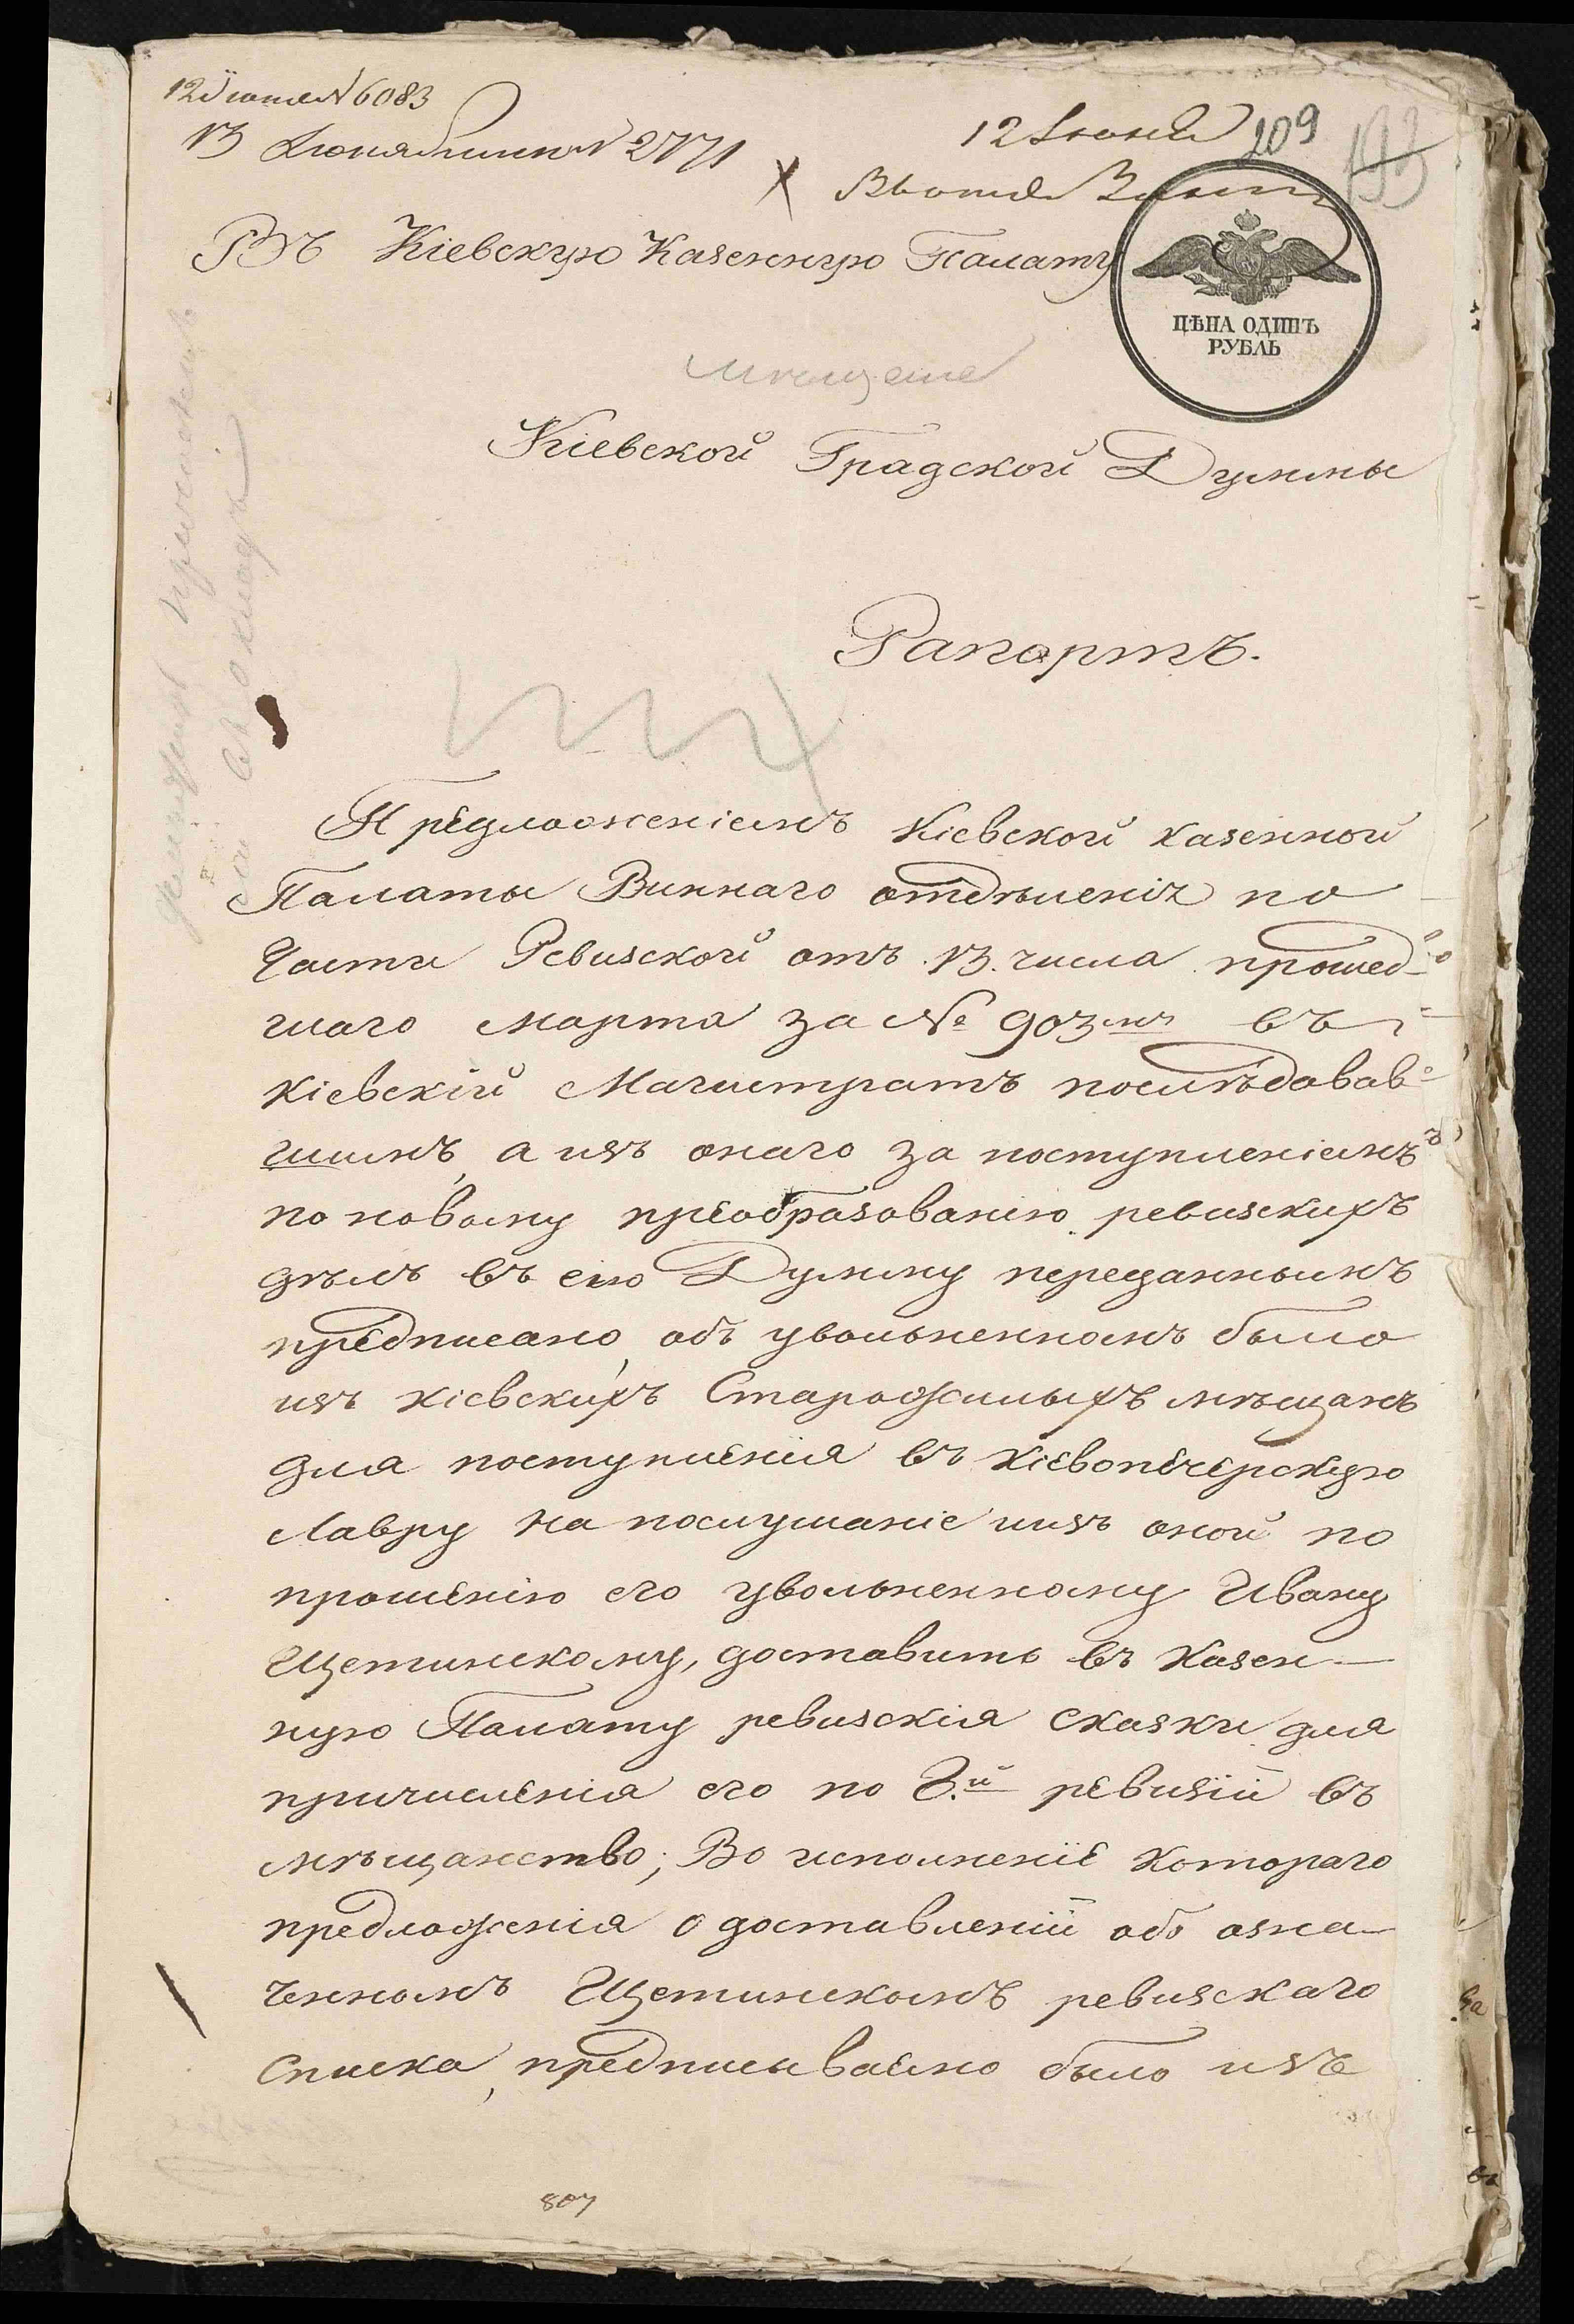 12 Іюня № 6083
13 Іюня № 2771
12 Іюня
209
Въ Кіевскую Казенную Палату
ЦѢНА ОДИНЪ
РУБЛЬ
мещане
Кіевской Градской Думмы
Рапортъ.
Предложеніемъ Кіевской Казенной
Палаты Виннаго отдѣленія по
Части Ревизской отъ 13. числа прошед-
шаго марта за № 903мъ въ
Кіевскій Магистратъ послѣдовав-
шимъ, а изъ онаго за поступленіемъ
по новому преобразованію ревизскихъ
дѣлъ въ сію Думму переданнымъ
предписано, объ увольненномъ было
изъ Кіевскихъ Старожилыхъ мѣщанъ
для поступленія въ Кіевопечерскую
Лавру на послушаніе иизъ оной по
прошенію его увольненному Ивану
Щетинскому, доставить въ Казен-
ную Палату ревизскія сказки для
причисленія его по 8.й ревизіи въ
мѣщанство; Во исполненіе Котораго
предложенія о доставленіи объ озна-
ченномъ Щетинскомъ ревизскаго
списка, предписываемо было изъ
807